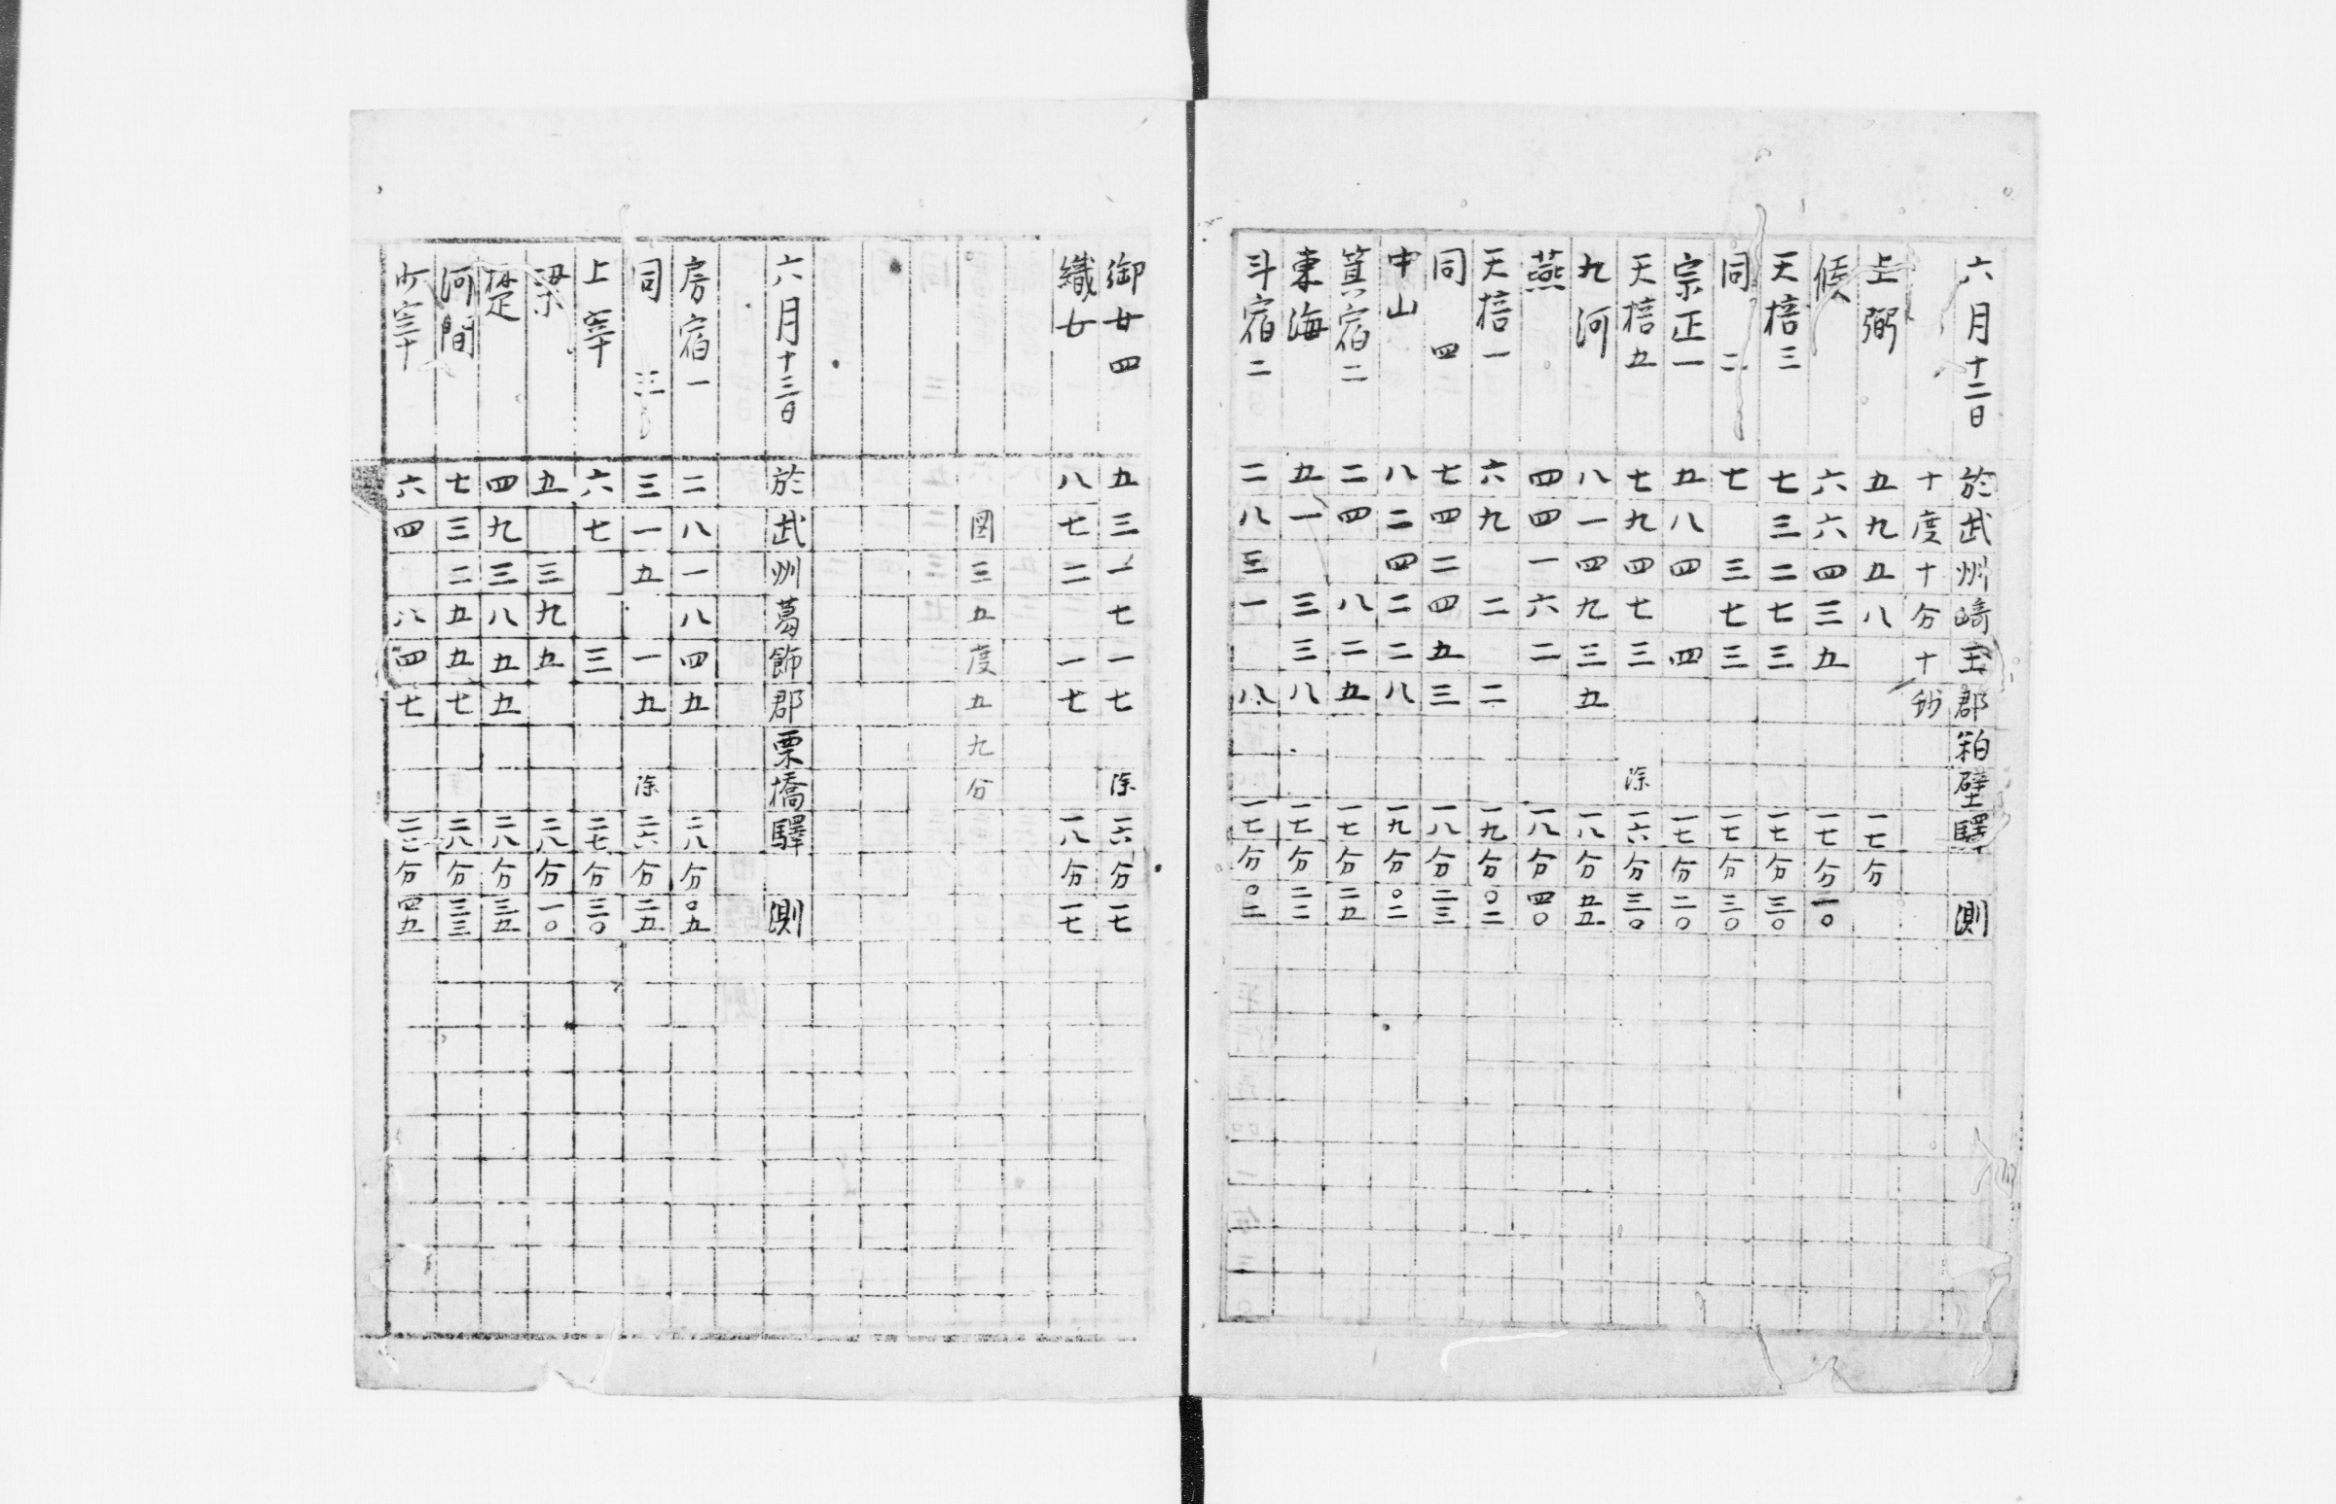 六月十二日 於武州﨑玉郡粕壁驛 測
十度十分十秒
上弼 五九五八 一七分
候 六六四三五 一七分一〇
天棓三 七三二七三 一七分三〇
同 二 七 三七三 一七分三〇
宗正一 五八四 四 一七分二〇
天棓五 七九四七三 除 一六分三〇
九河 八一四九三五 一八分五五
燕 四四一六二 一八分四〇
天棓一 六九 二 二 一九分〇二
同 四 七四二四五三 一八分二三
中山 八二四二二八 一九分〇二
箕宿二 二四 八二五 一七分二五
東海 五一 三三八 一七分二二
斗宿二 二八三一 八 一七分〇二
御女四 五三一七一七 除 一六分一七
織女 八七二 一七 一八分一七
図三五度五九分
六月十三日 於武州葛飾郡栗橋驛 測
房宿一 二八一八四五 二八分〇五
同 三 三一五 一五 除 二六分二五
上宰 六七 三 二七分三〇
梁 五 三九五 二八分一〇
楚 四九三八五五 二八分三五
河間 七三二五五七 二八分三三
少宰 六四 八四七 三一分四五